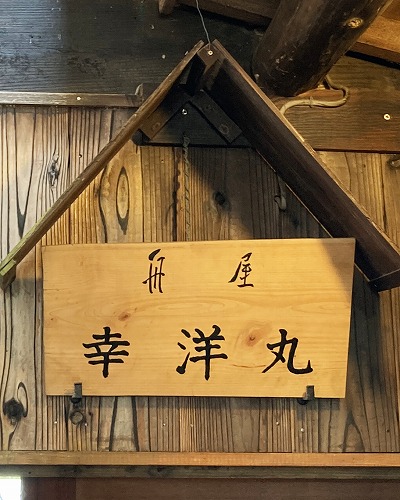 舟屋
幸洋丸